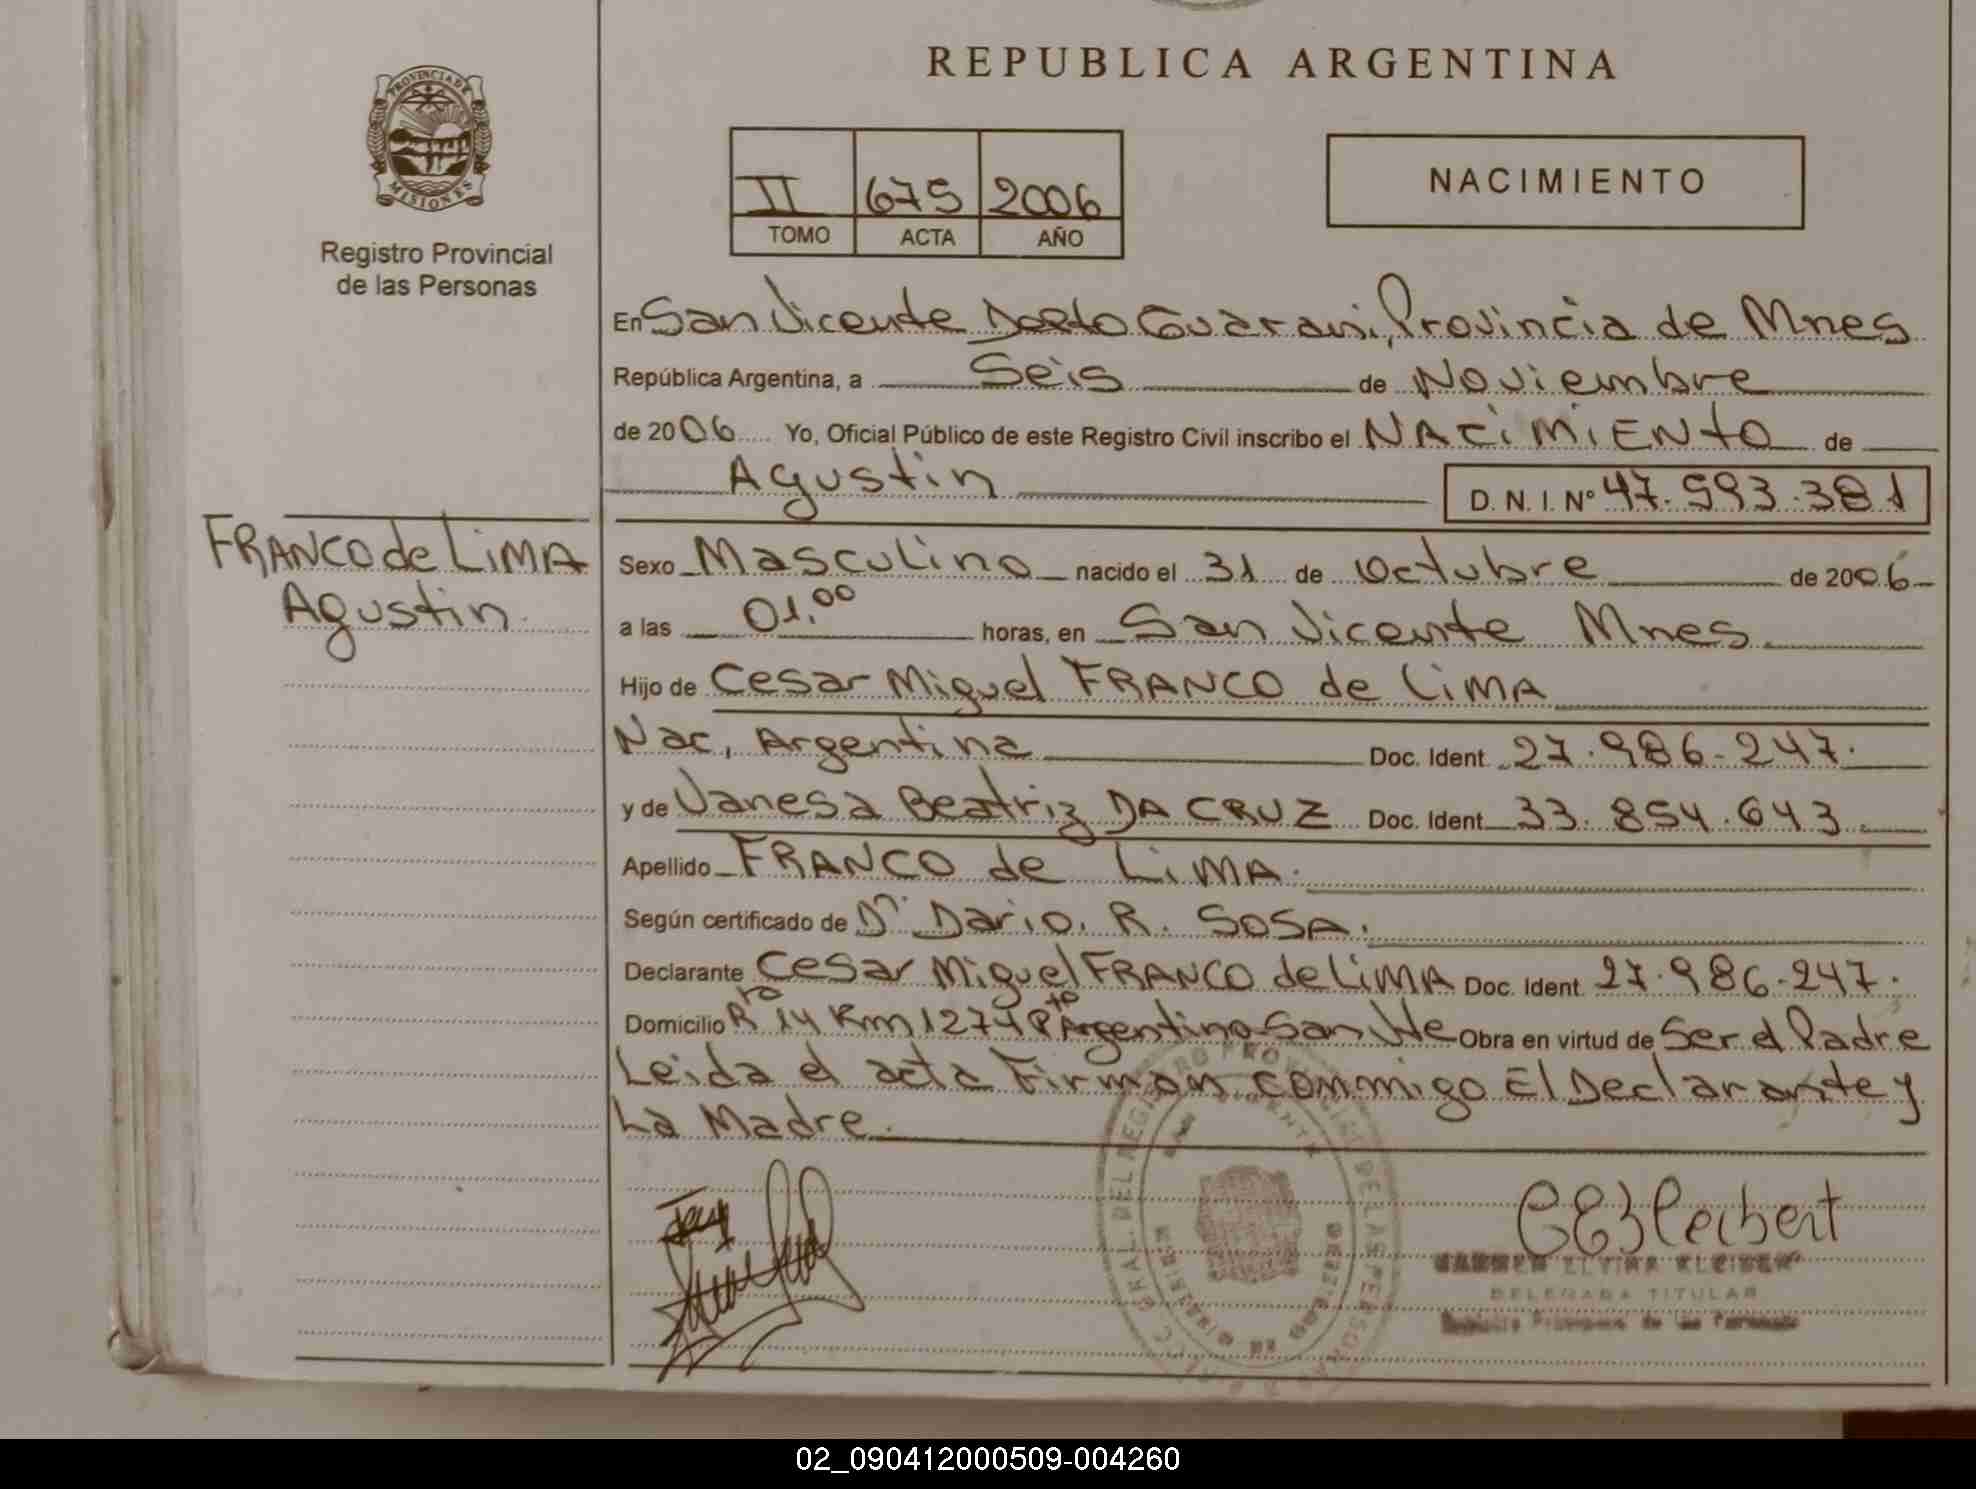 REPUBLICA ARGENTINA
PROVINCIA DE
MISIONES
Registro Provincial
de las Personas
II 675 2006
TOMO ACTA AÑO
NACIMIENTO
En San Vicente Dpto Guarani, Provincia de Mnes
República Argentina, a Seis de Noviembre
de 2006 Yo, Oficial Público de este Registro Civil inscribo el NACiMiENto de
Agustin D. N. I. Nº 47.593.381
FRANCO de LiMA
Agustin.
Sexo Masculino nacido el 31 de Octubre de 2006
a las 01,00 horas, en San Vicente Mnes.
Hijo de Cesar Miguel FRANCO de LiMA
Nac, Argentina Doc. Ident 27.986-247.
y de Vanesa Beatriz DA CRUZ Doc. Ident 33.854.643.
Apellido FRANCO de LiMA.
Según certificado de Dr. Dario. R. SOSA.
Declarante Cesar Miguel FRANCO de LiMA Doc. Ident. 27.986-247.
Domicilio Rta 14 Km 1274 Pto Argentino San Vte Obra en virtud de Ser el Padre
Leida el acta Firman conmigo El Declarante y
La Madre.
DELEGADA TITULAR
02_090412000509-004260